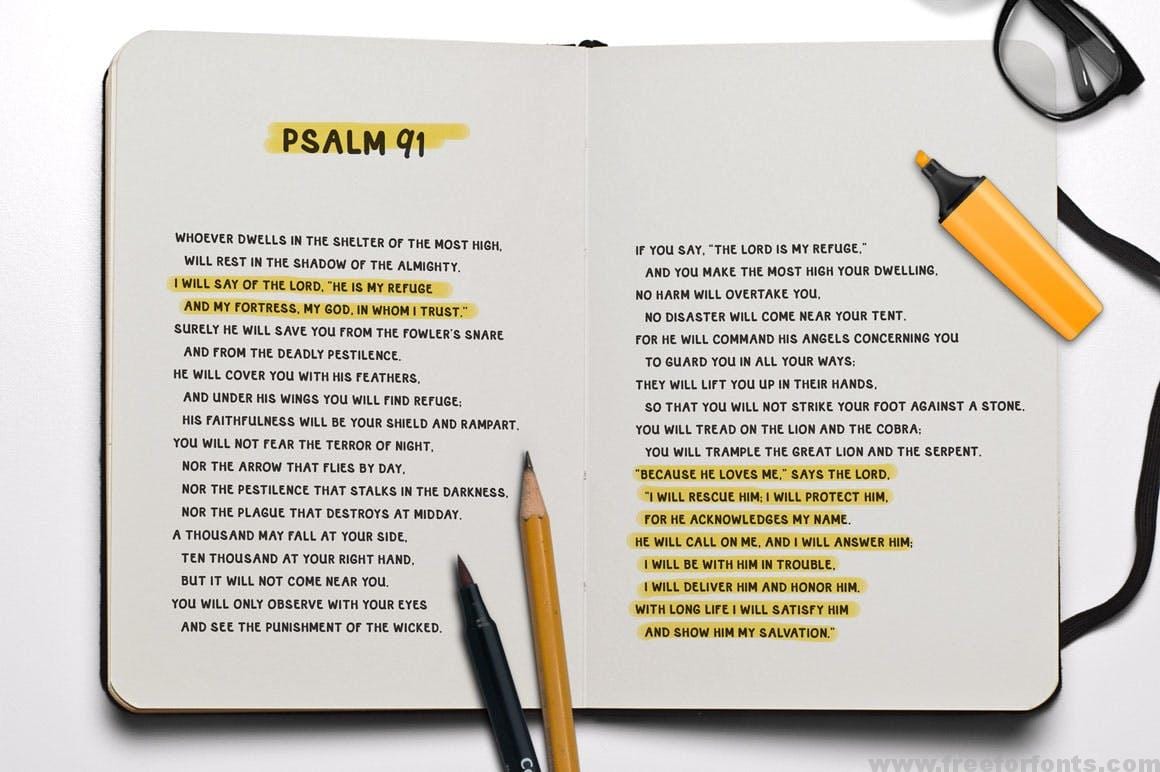 PSALM 91
WHOEVER DWELLS IN THE SHELTER OF THE MOST HIGH,
WILL REST IN THE SHADOW OF THE ALMIGHTY.
I WILL SAY OF THE LORD, "HE IS MY REFUGE
AND MY FORTRESS, MY GOD, IN WHOM I TRUST."
SURELY HE WILL SAVE YOU FROM THE FOWLER'S SNARE
AND FROM THE DEADLY PESTILENCE.
HE WILL COVER YOU WITH HIS FEATHERS,
AND UNDER HIS WINGS YOU WILL FIND REFUGE;
HIS FAITHFULNESS WILL BE YOUR SHIELD AND RAMPART.
YOU WILL NOT FEAR THE TERROR OF NIGHT,
NOR THE ARROW THAT FLIES BY DAY,
NOR THE PESTILENCE THAT STALKS IN THE DARKNESS,
NOR THE PLAGUE THAT DESTROYS AT MIDDAY.
A THOUSAND MAY FALL AT YOUR SIDE,
TEN THOUSAND AT YOUR RIGHT HAND,
BUT IT WILL NOT COME NEAR YOU.
YOU WILL ONLY OBSERVE WITH YOUR EYES
AND SEE THE PUNISHMENT OF THE WICKED.
IF YOU SAY, "THE LORD IS MY REFUGE,"
AND YOU MAKE THE MOST HIGH YOUR DWELLING,
NO HARM WILL OVERTAKE YOU,
NO DISASTER WILL COME NEAR YOUR TENT.
FOR HE WILL COMMAND HIS ANGELS CONCERNING YOU
TO GUARD YOU IN ALL YOUR WAYS;
THEY WILL LIFT YOU UP IN THEIR HANDS,
SO THAT YOU WILL NOT STRIKE YOUR FOOT AGAINST A STONE.
YOU WILL TREAD ON THE LION AND THE COBRA;
YOU WILL TRAMPLE THE GREAT LION AND THE SERPENT.
"BECAUSE HE LOVES ME," SAYS THE LORD,
"I WILL RESCUE HIM; I WILL PROTECT HIM,
FOR HE ACKNOWLEDGES MY NAME.
HE WILL CALL ON ME, AND I WILL ANSWER HIM;
I WILL BE WITH HIM IN TROUBLE,
I WILL DELIVER HIM AND HONOR HIM.
WITH LONG LIFE I WILL SATISFY HIM
AND SHOW HIM MY SALVATION."
www.freeforfonts.com